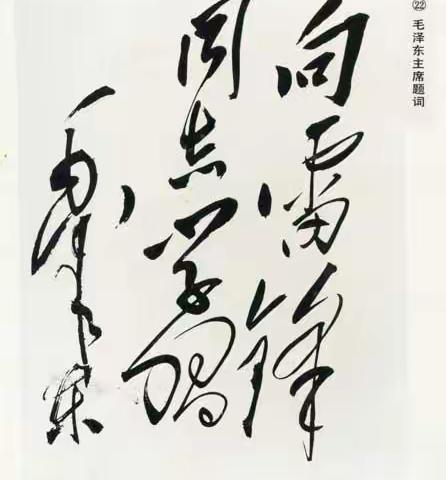 ㉒ 毛泽东主席题词
向雷锋
同志学习
毛泽东